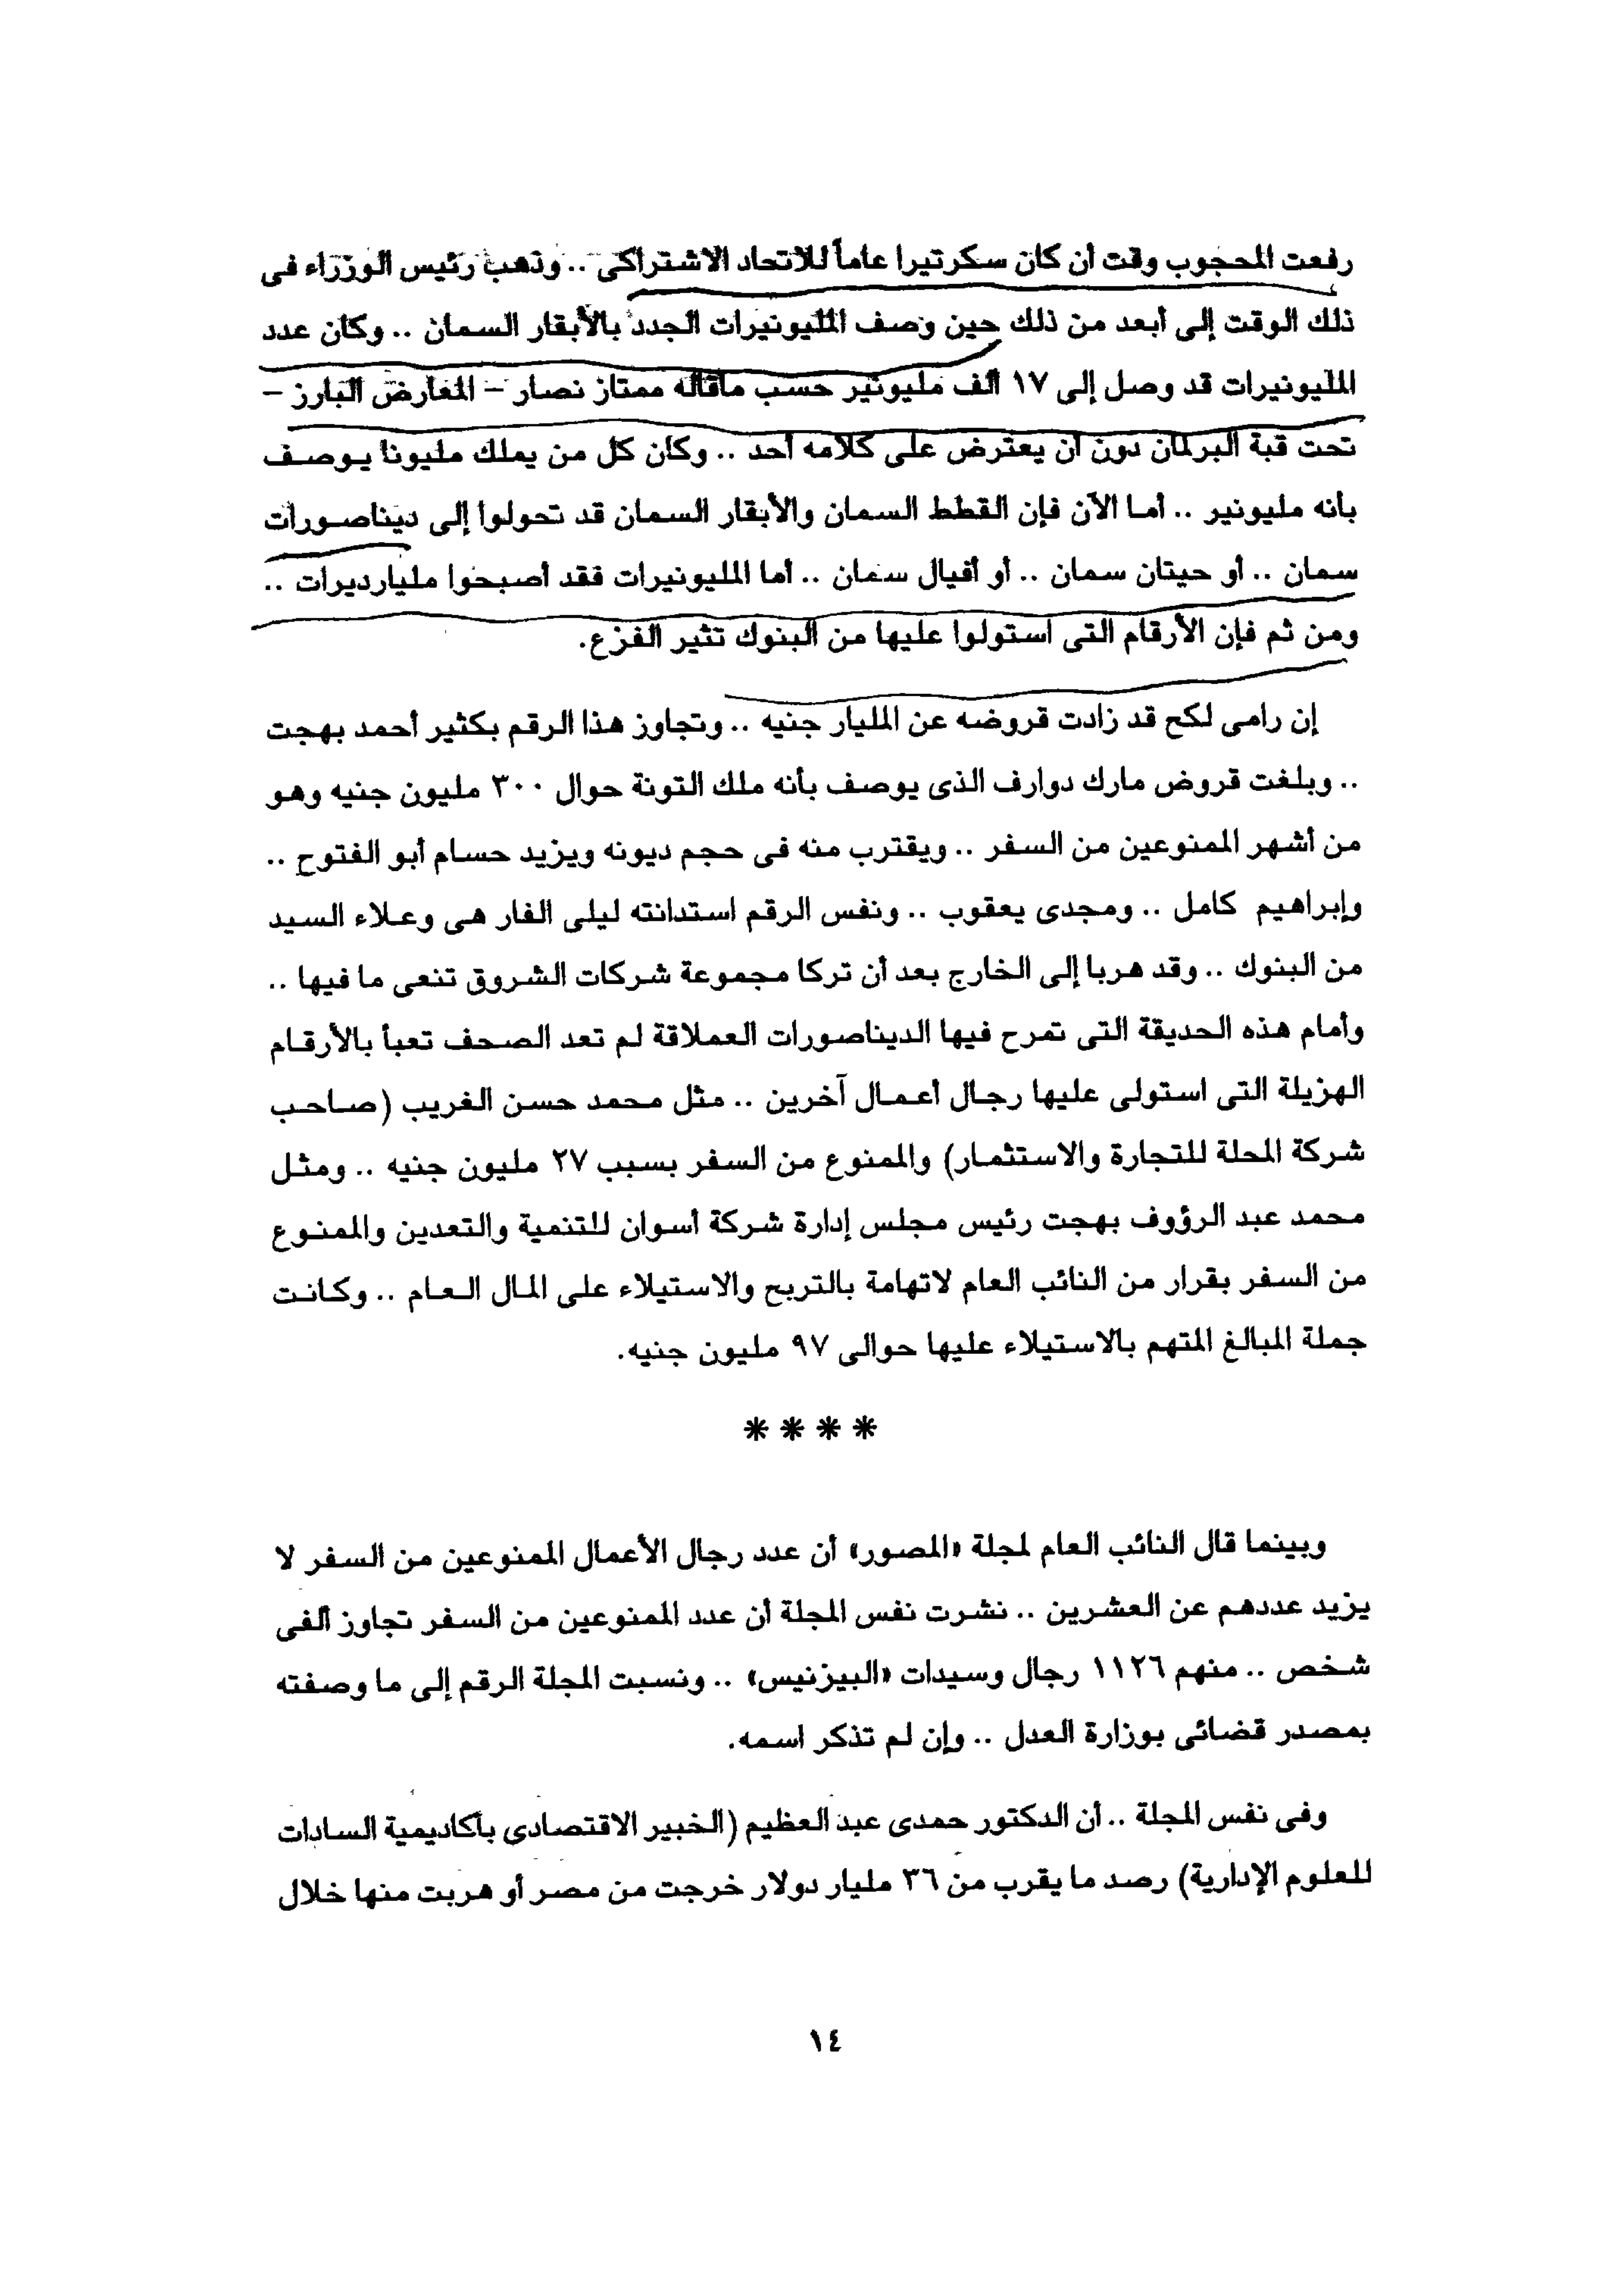 رفعت المحجوب وقت أن كان سكرتيرا عاماً للاتحاد الاشتراكى .. وذهب رئيس الوزراء فى
ذلك الوقت إلى أبعد من ذلك حين وصف المليونيرات الجدد بالأبقار السمان .. وكان عدد
المليونيرات قد وصل إلى ١٧ ألف مليونير حسب ماقاله ممتاز نصار – المعارض البارز –
تحت قبة البرلمان دون أن يعترض على كلامه أحد .. وكان كل من يملك مليونا يوصف
بأنه مليونير .. أما الآن فإن القطط السمان والأبقار السمان قد تحولوا إلى ديناصورات
سمان .. أو حيتان سمان .. أو أفيال سمان .. أما المليونيرات فقد أصبحوا ملياردير‌ات ..
ومن ثم فإن الأرقام التى استولوا عليها من البنوك تثير الفزع.
إن رامى لكح قد زادت قروضه عن المليار جنيه .. وتجاوز هذا الرقم بكثير أحمد بهجت
.. وبلغت قروض مارك دوارف الذى يوصف بأنه ملك التونة حوال ٣٠٠ مليون جنيه وهو
من أشهر الممنوعين من السفر .. ويقترب منه فى حجم ديونه ويزيد حسام أبو الفتوح ..
وإبراهيم كامل .. ومجدى يعقوب .. ونفس الرقم استدانته ليلى الفار هى وعلاء السيد
من البنوك .. وقد هربا إلى الخارج بعد أن تركا مجموعة شركات الشروق تنعى ما فيها ..
وأمام هذه الحديقة التى تمرح فيها الديناصورات العملاقة لم تعد الصحف تعبأ بالأرقام
الهزيلة التى استولى عليها رجال أعمال آخرين .. مثل محمد حسن الغريب (صاحب
شركة المحلة للتجارة والاستثمار) والممنوع من السفر بسبب ٢٧ مليون جنيه .. ومثل
محمد عبد الرؤوف بهجت رئيس مجلس إدارة شركة أسوان للتنمية والتعدين والممنوع
من السفر بقرار من النائب العام لاتهامة بالتربح والاستيلاء على المال العام .. وكانت
جملة المبالغ المتهم بالاستيلاء عليها حوالى ٩٧ مليون جنيه.
****
وبينما قال النائب العام لمجلة «المصور» أن عدد رجال الأعمال الممنوعين من السفر لا
يزيد عددهم عن العشرين .. نشرت نفس المجلة أن عدد الممنوعين من السفر تجاوز ألفى
شخص .. منهم ١١٢٦ رجال وسيدات «البيزنيس» .. ونسبت المجلة الرقم إلى ما وصفته
بمصدر قضائى بوزارة العدل .. وإن لم تذكر اسمه.
وفى نفس المجلة .. أن الدكتور حمدى عبد العظيم (الخبير الاقتصادى بأكاديمية السادات
للعلوم الإدارية) رصد ما يقرب من ٣٦ مليار دولار خرجت من مصر أو هربت منها خلال
١٤